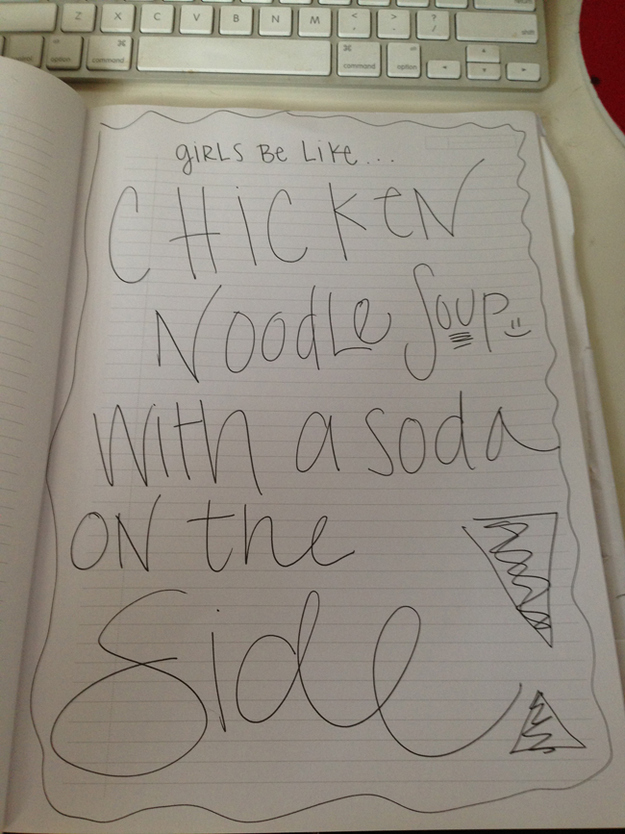 Z X C V B N M < , > . ? /
shift
option ⌘ command ⌘ command option
girls be like...
Chicken
Noodle Soup
with a soda
on the
Side